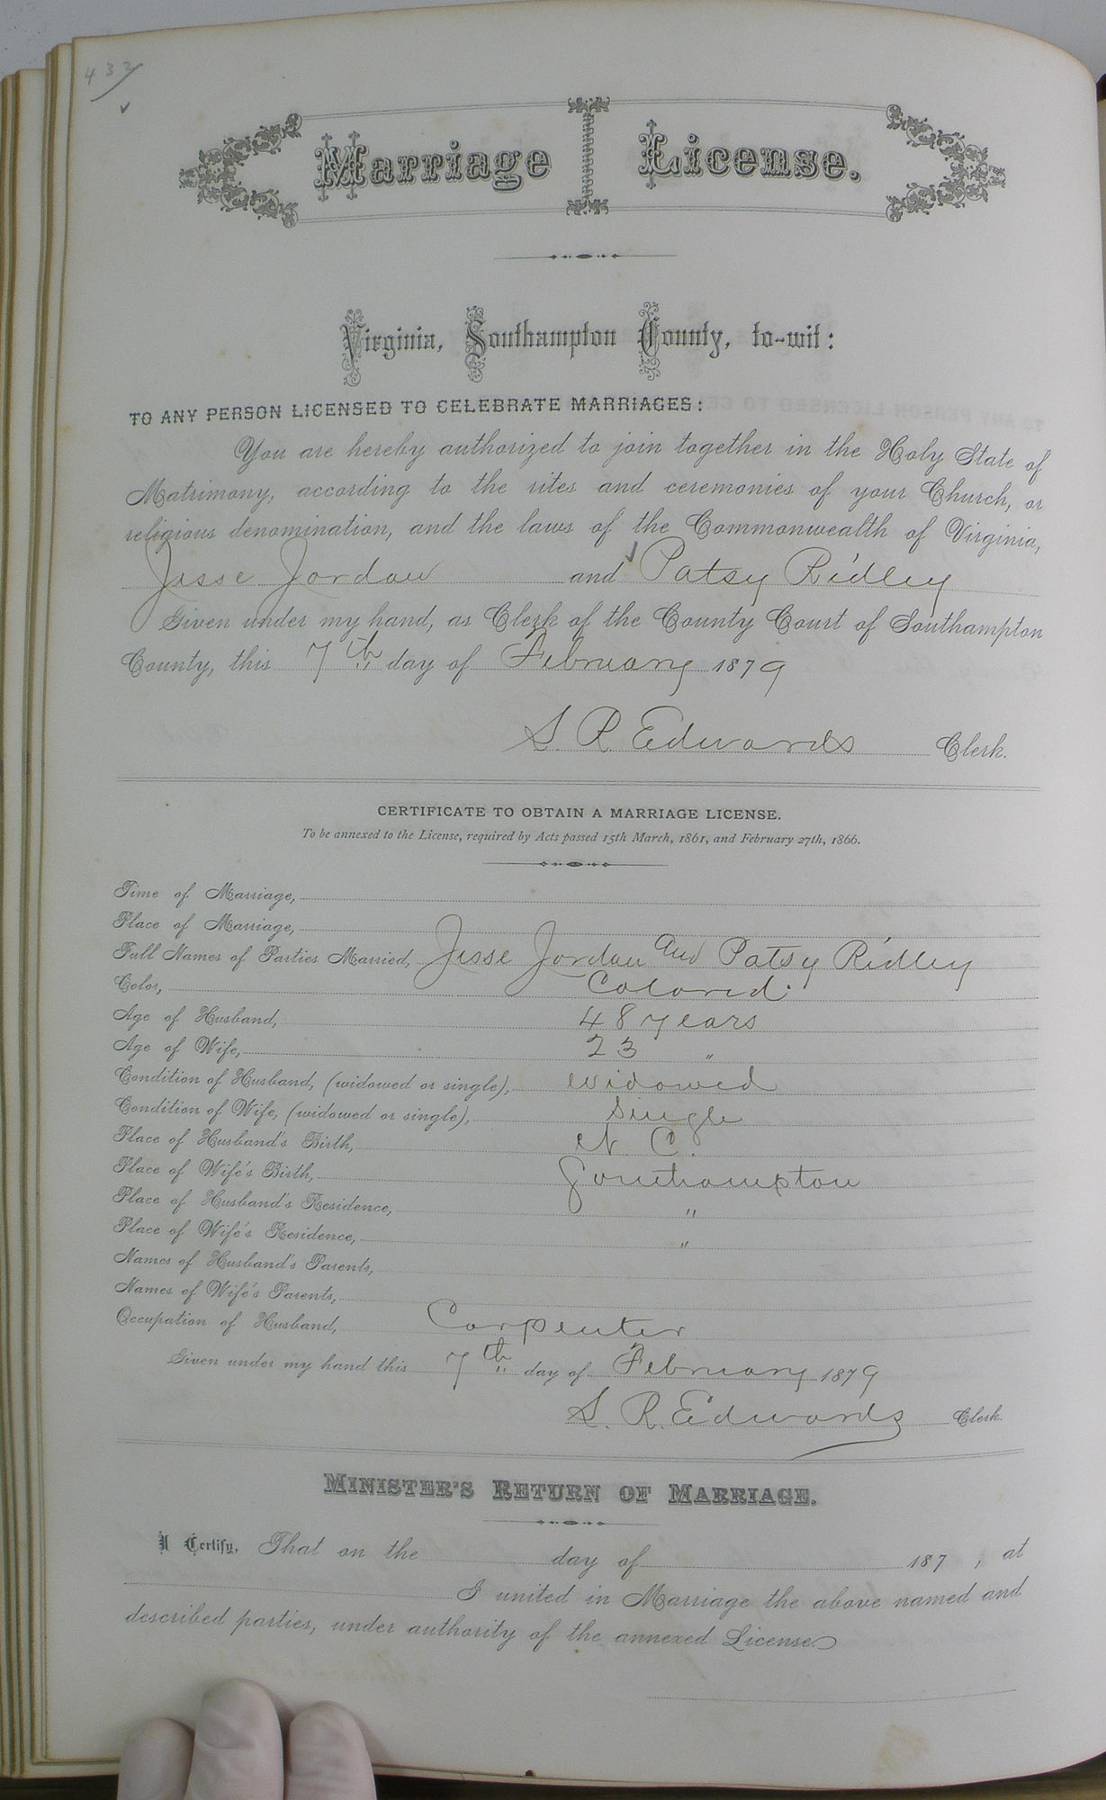 433
Marriage License.
Virginia, Southampton County, to-wit:
TO ANY PERSON LICENSED TO CELEBRATE MARRIAGES:
You are hereby authorized to join together in the Holy State of
Matrimony, according to the rites and ceremonies of your Church, or
religious denomination, and the laws of the Commonwealth of Virginia,
Jesse Jordan and Patsy Ridley
Given under my hand, as Clerk of the County Court of Southampton
County, this 7th day of February 1879
S. R. Edwards Clerk.
CERTIFICATE TO OBTAIN A MARRIAGE LICENSE.
To be annexed to the License, required by Acts passed 15th March, 1861, and February 27th, 1866.
Time of Marriage,
Place of Marriage,
Full Names of Parties Married, Jesse Jordan and Patsy Ridley
Color, Colored.
Age of Husband, 48 years
Age of Wife, 23 "
Condition of Husband, (widowed or single), widowed
Condition of Wife, (widowed or single), Single
Place of Husband's Birth, N. C.
Place of Wife's Birth, Southampton
Place of Husband's Residence, "
Place of Wife's Residence, "
Names of Husband's Parents,
Names of Wife's Parents,
Occupation of Husband, Carpenter
Given under my hand this 7th day of February 1879
S. R. Edwards Clerk.
MINISTER'S RETURN OF MARRIAGE.
I Certify, That on the day of 187 , at
I united in Marriage the above named and
described parties, under authority of the annexed License